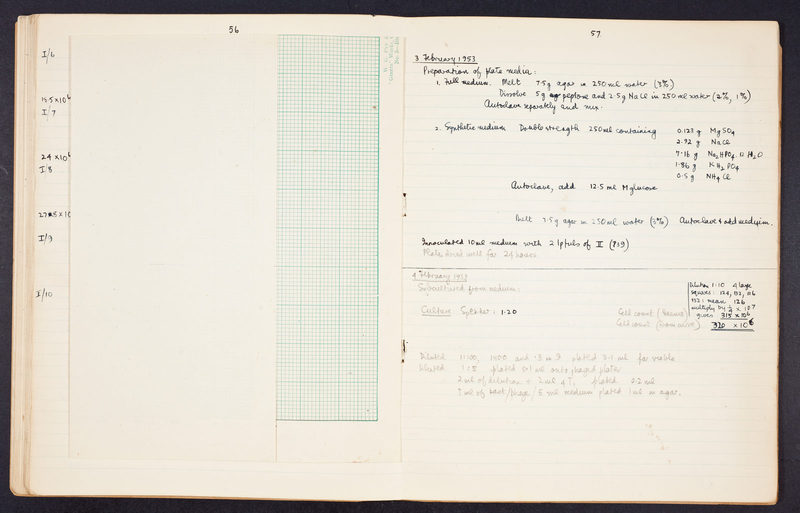 56
I/6
I/7
I/8
I/9
I/10
57
3 February 1953
Preparation of plate media:
1. Full medium. Melt 7.5g agar in 250 ml water (3%)
Dissolve 5g peptone and 2.5g NaCl in 250 ml water (2%, 1%)
Autoclave separately and mix.
2. Synthetic medium Double strength 250 ml containing 0.123 g MgSO4
2.92 g NaCl
7.16 g Na2HPO4.12H2O
1.86 g KH2PO4
0.5 g NH4Cl
Autoclave, add 12.5 ml M glucose
Melt 7.5g agar in 250 ml water (3%) Autoclave & add medium.
Innoculated 10 ml medium with 2 lpfuls of II (839)
Plates dried well for 24 hours.
4 February 1953
Subcultured from medium:
Culture Spekker: 1.20
Cell count
Cell count
Dilution 1:10 4 large
squares: 124, 132, 116
132: mean 126
multiply by ¼ x 10⁷
gives 315 x 10⁶
320 x 10⁶
Diluted plated 0.1 ml for viable
Diluted plated 0.1 ml onto phaged plates
2 ml of dilution + 2 ml plated 0.2 ml
1 ml of 5 ml medium plated 1 ml in agar.